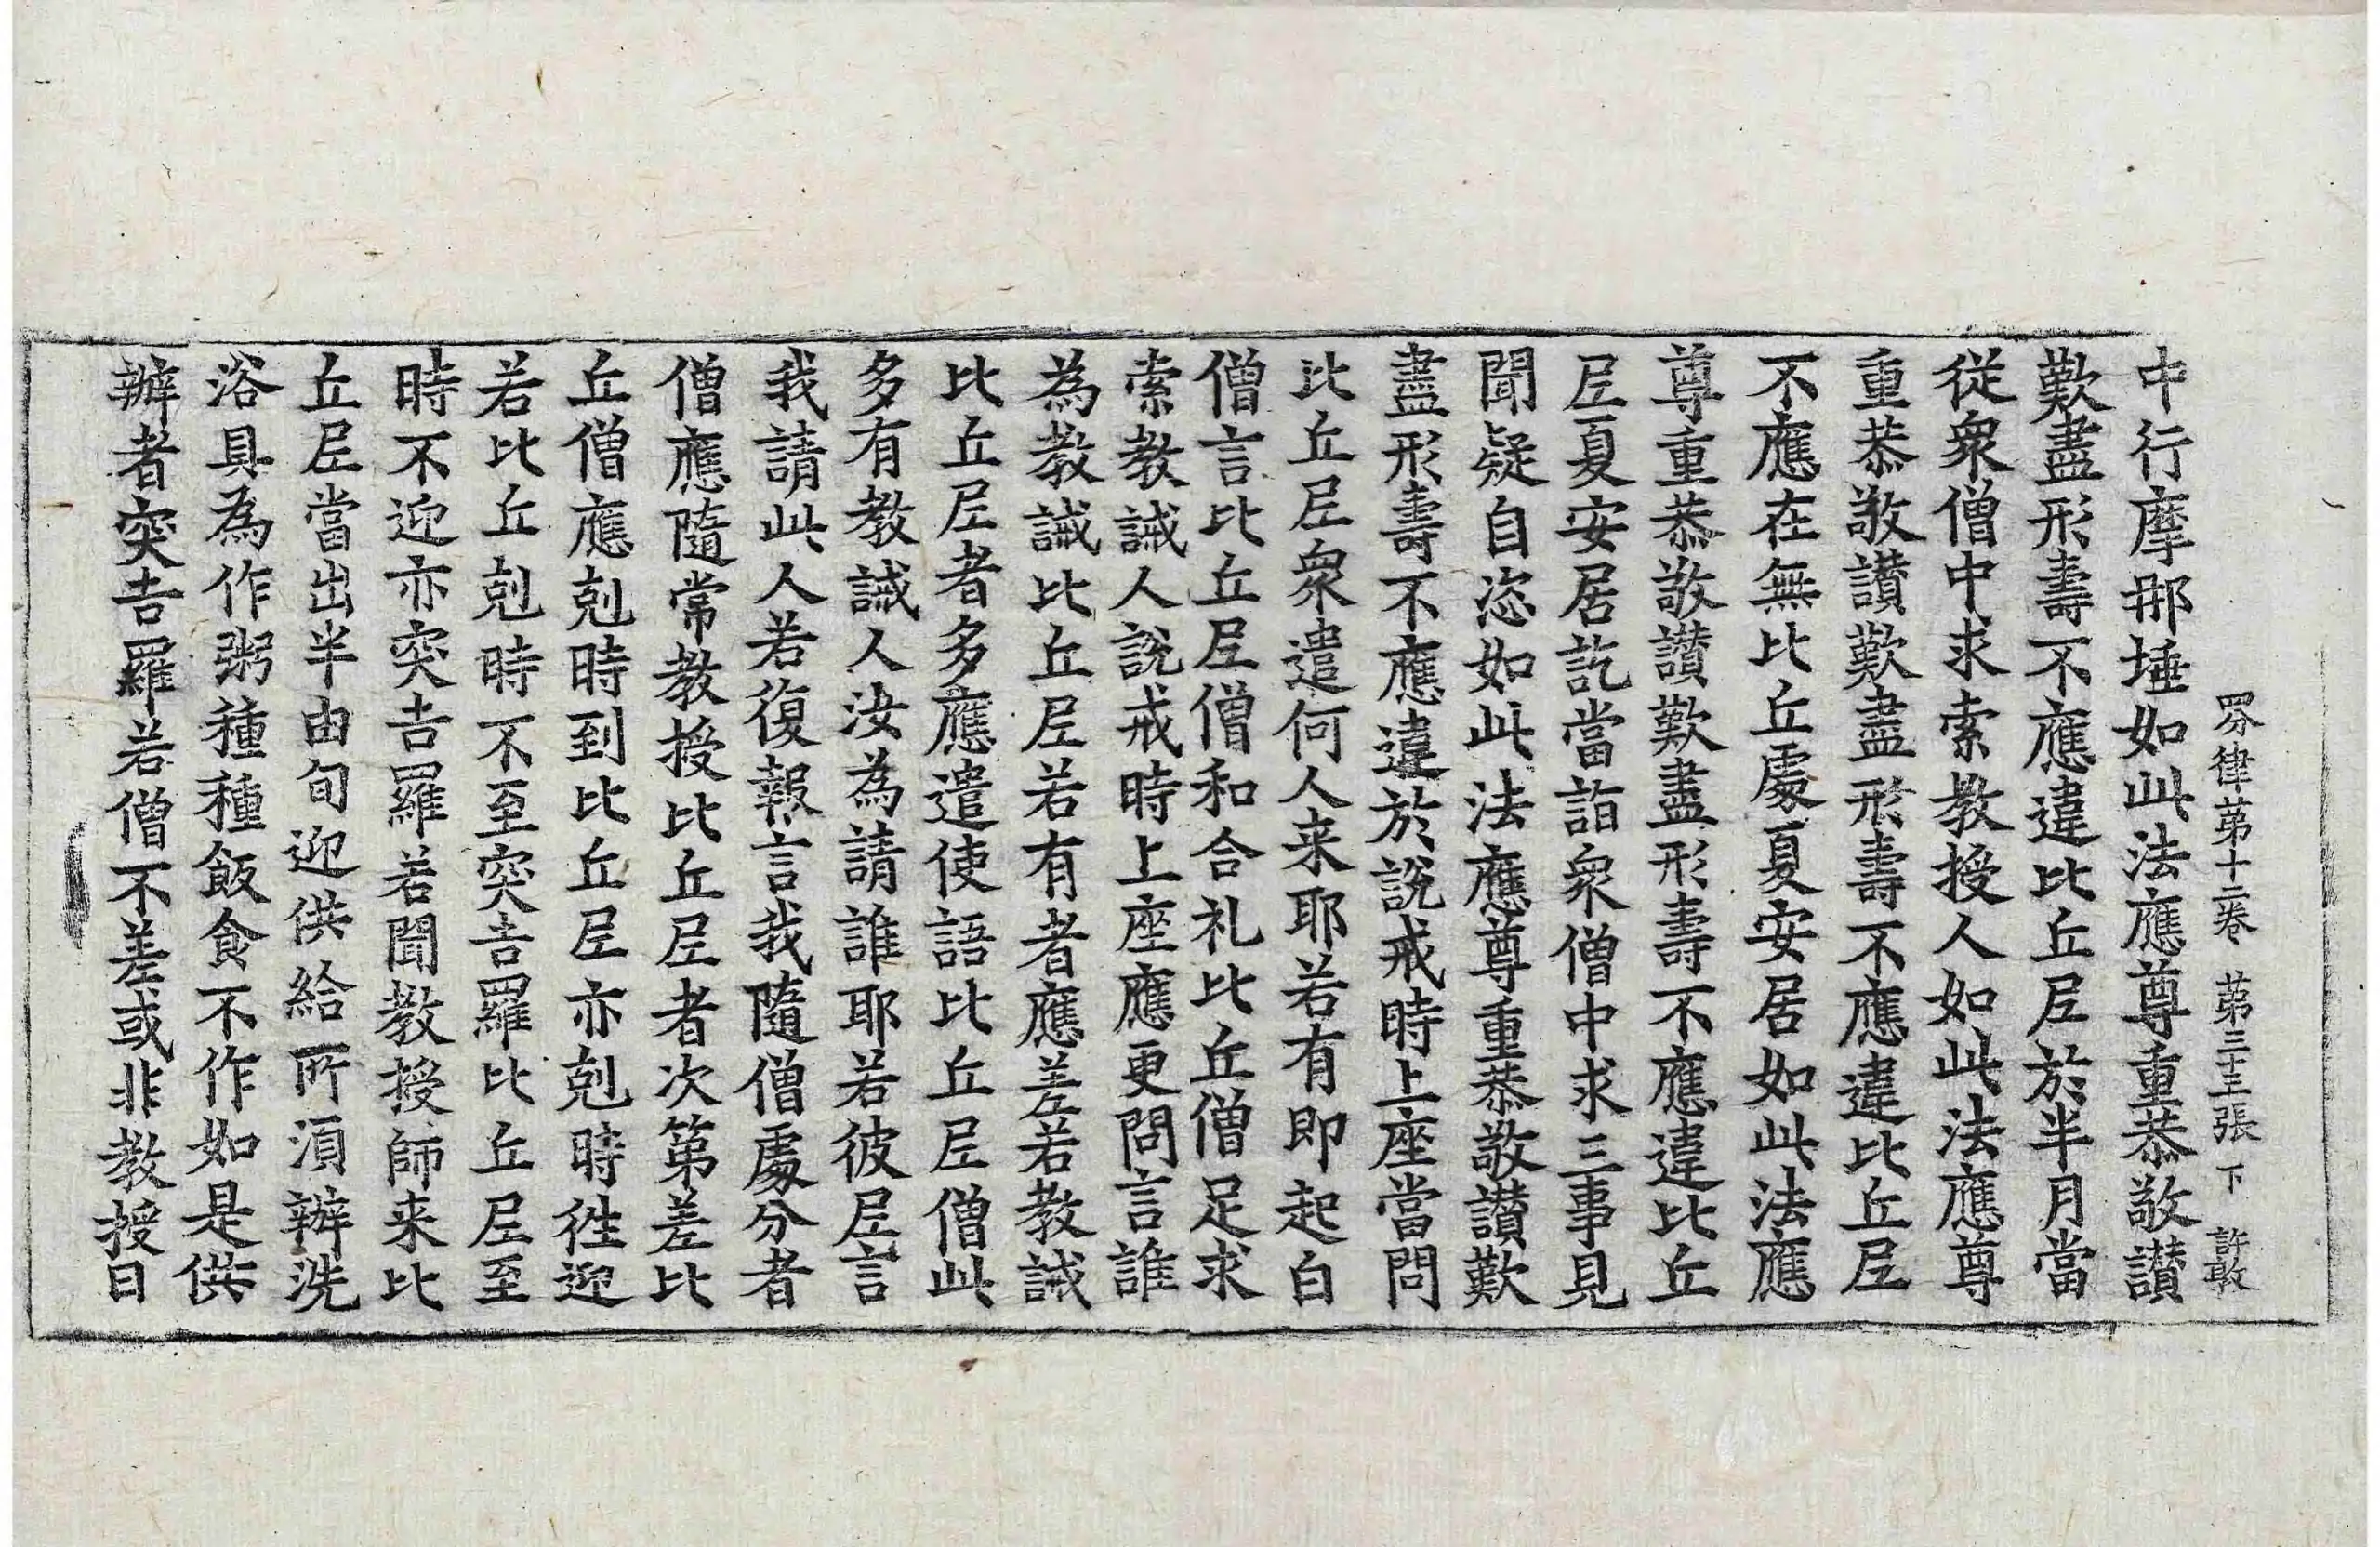 四分律第十二卷 第三十三張 下 許敢
中行摩那埵如此法應尊重恭敬讃
歎盡形壽不應違比丘尼於半月當
從衆僧中求索教授人如此法應尊
重恭敬讃歎盡形壽不應違比丘尼
不應在無比丘處夏安居如此法應
尊重恭敬讃歎盡形壽不應違比丘
尼夏安居訖當詣衆僧中求三事見
聞疑自恣如此法應尊重恭敬讃歎
盡形壽不應違於說戒時上座當問
比丘尼衆遣何人来耶若有即起白
僧言比丘尼僧和合礼比丘僧足求
索教誡人說戒時上座應更問言誰
為教誡比丘尼若有者應差若教誡
比丘尼者多應遣使語比丘尼僧此
多有教誡人汝為請誰耶若彼尼言
我請此人若復報言我隨僧處分者
僧應隨常教授比丘尼者次第差比
丘僧應剋時到比丘尼亦剋時徃迎
若比丘剋時不至突吉羅比丘尼至
時不迎亦突吉羅若聞教授師来比
丘尼當出半由旬迎供給所湏辦洗
浴具為作粥種種飯食不作如是供
辦者突吉羅若僧不差或非教授日